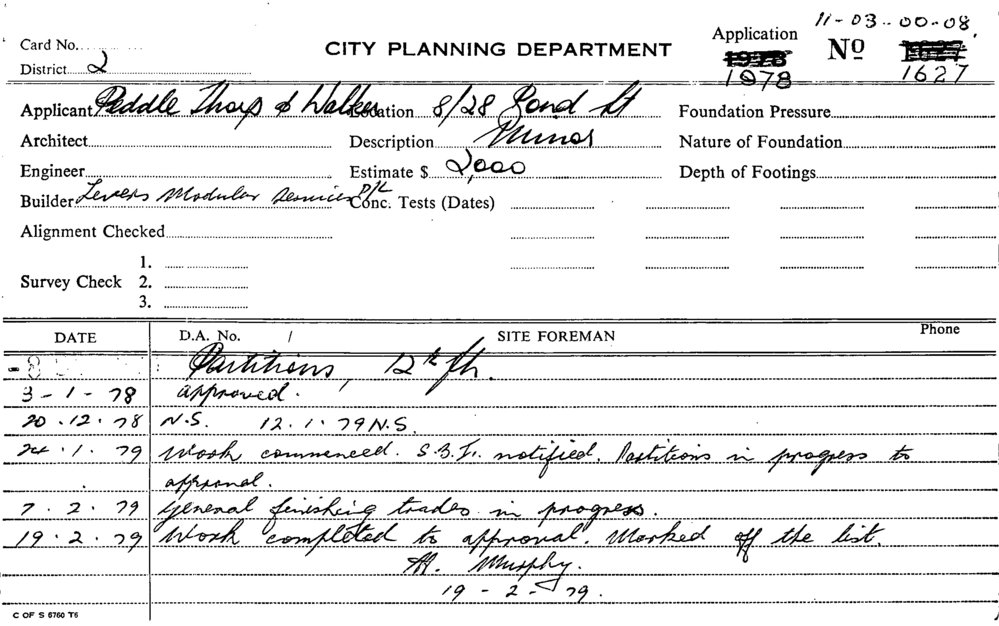 11-03-00-08
Card No.
CITY PLANNING DEPARTMENT
Application
No
1978
1627
District 2
Applicant Peddle Thorp & Walker
Location 8/28 Bond St
Foundation Pressure
Architect
Description Minor
Nature of Foundation
Engineer
Estimate $ 2,000
Depth of Footings
Builder Levers Modular Services P/L
Conc. Tests (Dates)
Alignment Checked
Survey Check
1.
2.
3.
DATE
D.A. No. /
SITE FOREMAN
Phone
-8
Partitions, 12th flr.
3-1-78 approved.
20.12.78 N.S. 12.1.79 N.S.
24.1.79 Work commenced. S.B.I. notified. Partitions in progress to
approval.
7.2.79 General finishing trades in progress.
19.2.79 Work completed to approval. Marked off the list.
Murphy.
19-2-79.
C OF S 6760 T6